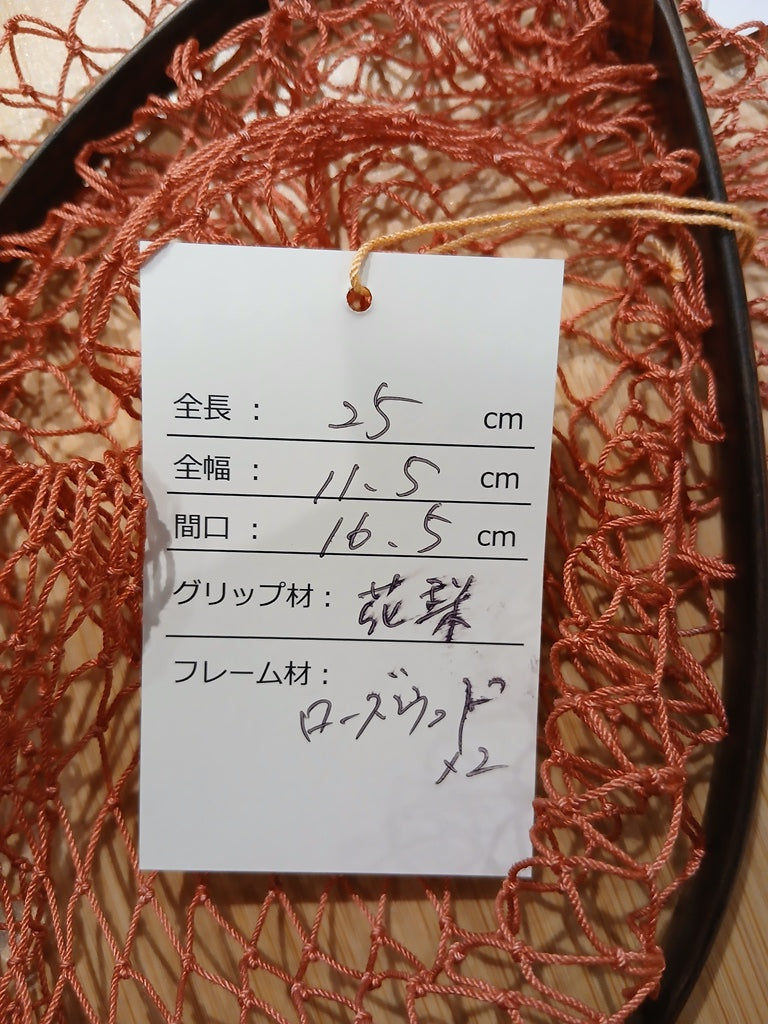 全長 : 25 cm
全幅 : 11.5 cm
間口 : 16.5 cm
グリップ材 : 花梨
フレーム材 :
ローズウッド
×2